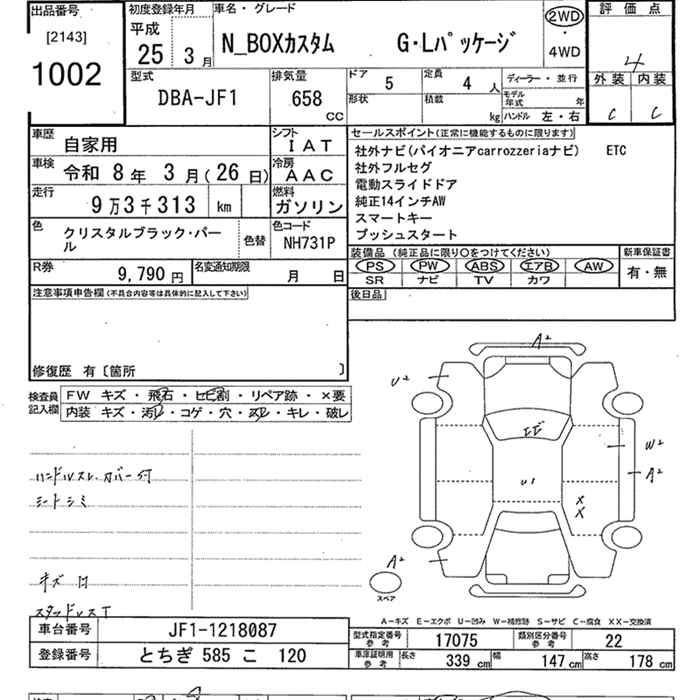 出品番号
[2143]
1002
初度登録年月
平成
25 3月
車名・グレード
N_BOXカスタム G・Lパッケージ
2WD
・
4WD
評価点
4
外装 内装
C C
型式
DBA-JF1
排気量
658
CC
ドア 5
定員 4 人
形状
積載 kg
ディーラー・並行
モデル年式 年
ハンドル 左・右
車歴 自家用
シフト IAT
車検 令和 8年 3月(26日)
冷房 AAC
走行 9万3千313 km
燃料 ガソリン
色 クリスタルブラック・パール
色替
色コード NH731P
R券 9,790円
名変通知期限 月 日
セールスポイント(正常に機能するものに限ります)
社外ナビ(パイオニアcarrozzeriaナビ) ETC
社外フルセグ
電動スライドドア
純正14インチAW
スマートキー
プッシュスタート
装備品(純正品に限り○をつけてください)
PS PW ABS エアB AW
SR ナビ TV カワ
新車保証書
有・無
後日品
注意事項申告欄(不具合内容等は具体的に記入して下さい)
修復歴 有〔箇所 〕
検査員記入欄
FW キズ・飛石・ヒビ割・リペア跡・×要
内装 キズ・汚レ・コゲ・穴・スレ・キレ・破レ
ハンドルスレ、カバー付
シートシミ
キズ 凹
スタッドレスT
A2
U2
エビ
W2
A2
U1
X
X
A2
スペア
A-キズ E-エクボ U-凹み W-補修跡 S-サビ C-腐食 XX-交換済
車台番号 JF1-1218087
登録番号 とちぎ 585 こ 120
型式指定番号 参考 17075
類別区分番号 参考 22
車庫証明用 参考 長さ 339 cm 幅 147 cm 高さ 178 cm